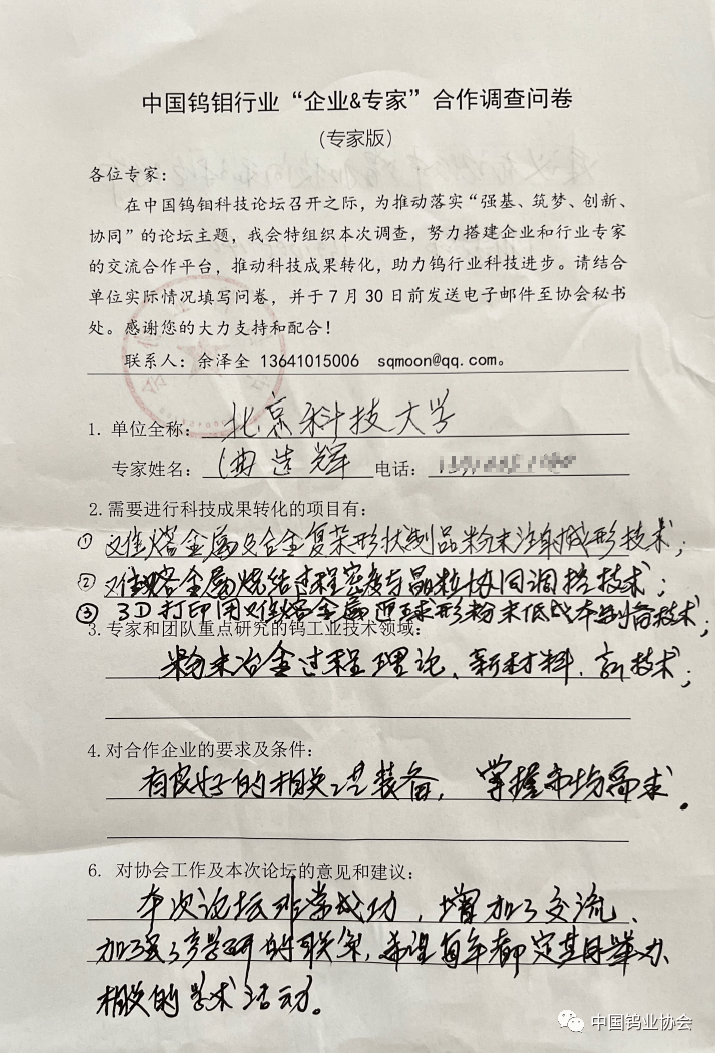 中国钨钼行业“企业&专家”合作调查问卷
（专家版）
各位专家：
在中国钨钼科技论坛召开之际，为推动落实“强基、筑梦、创新、
协同”的论坛主题，我会特组织本次调查，努力搭建企业和行业专家
的交流合作平台，推动科技成果转化，助力钨行业科技进步。请结合
单位实际情况填写问卷，并于7月30日前发送电子邮件至协会秘书
处。感谢您的大力支持和配合！
联系人：余泽全 13641015006 sqmoon@qq.com。
1. 单位全称：北京科技大学
专家姓名：曲选辉 电话：
2.需要进行科技成果转化的项目有：
① 难熔金属及合金复杂形状制品粉末注射成形技术；
② 难熔金属烧结过程密度与晶粒协同调控技术；
③ 3D打印用难熔金属近球形粉末低成本制备技术；
3.专家和团队重点研究的钨工业技术领域：
粉末冶金过程理论、新材料、新技术；
4.对合作企业的要求及条件：
有良好的相关工艺装备，掌握市场需求。
6. 对协会工作及本次论坛的意见和建议：
本次论坛非常成功，增加了交流、
加强了产学研的联系，希望每年都定期举办
相关的学术活动。
中国钨业协会